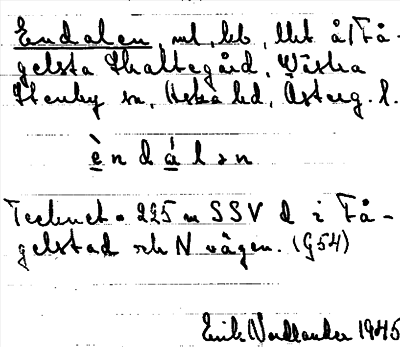 Endalen, ml, lb, lbt å/Få-
gelsta Skattegård, Västra
Stenby sn, Aska hd, Österg. l.
è n d á l ə n
Tecknet • 225 m SSV d i Få-
gelstad och N vägen. (G54)
Erik Nordlander 1945